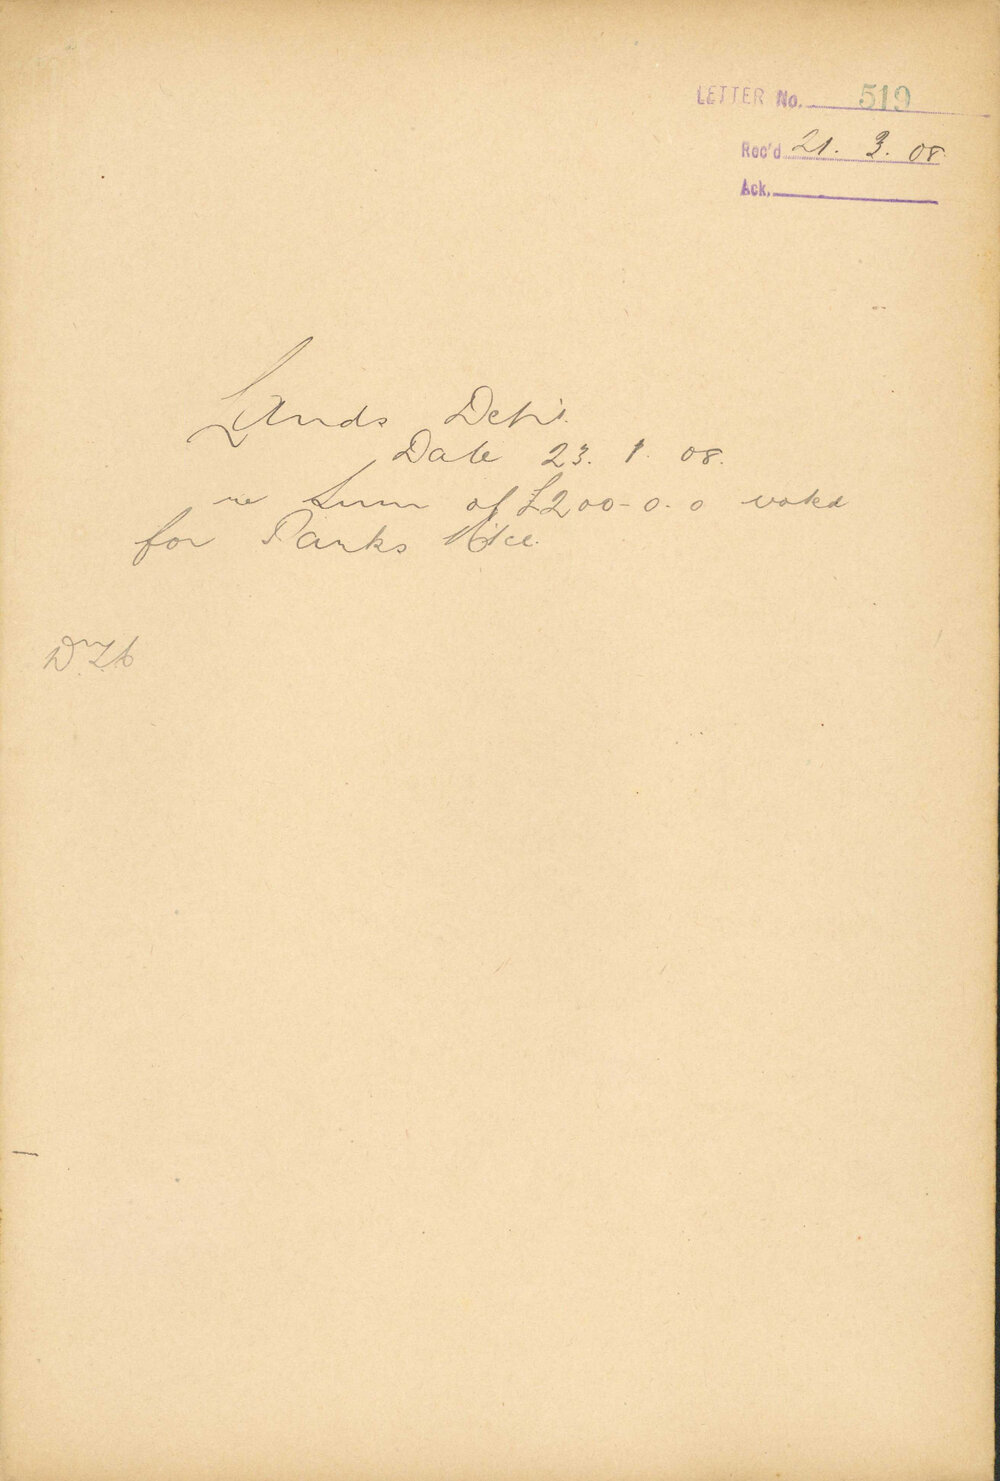 LETTER No. 519
Rec'd 21. 3. 08
Ack.
Lands Dep't.
Date 23. 1. 08.
re Sum of £200-0.0 voted
for Parks